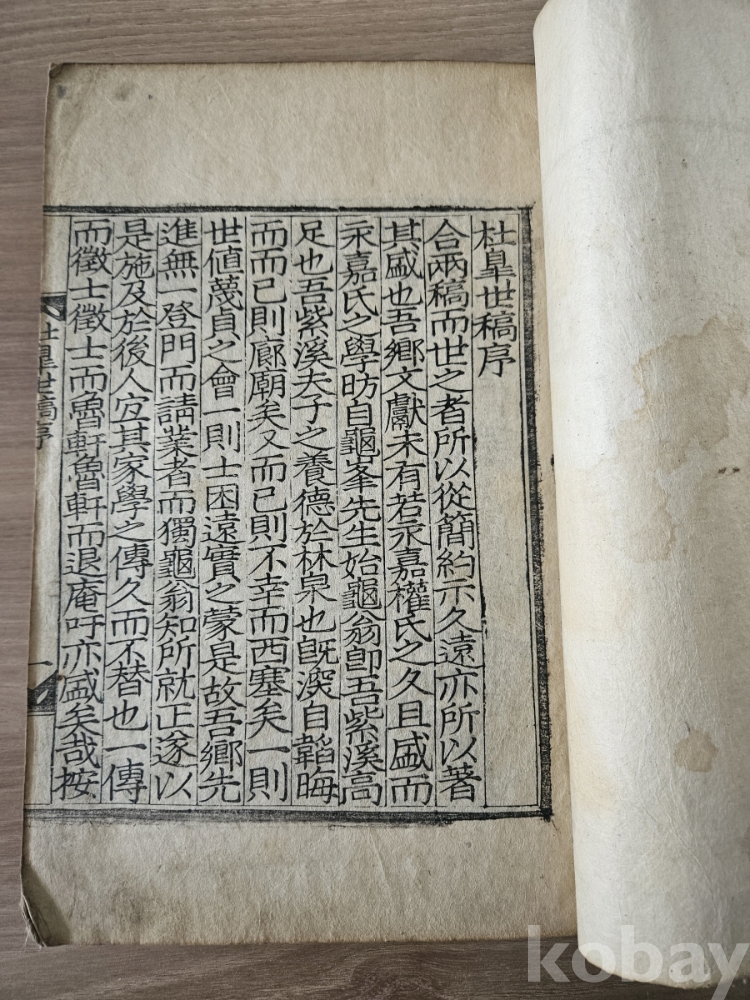 杜皐世稿序
合兩稿而世之者所以從簡約示久遠亦所以著
其盛也吾鄉文獻未有若永嘉權氏之久且盛而
永嘉氏之學昉自龜峯先生始龜翁卽吾紫溪高
足也吾紫溪夫子之養德於林泉也旣深自韜晦
而而已則廊廟矣又而已則不幸而西塞矣一則
世値蔑貞之會一則士困遠實之蒙是故吾鄉先
進無一登門而請業者而獨龜翁知所就正遂以
是施及於後人宜其家學之傳久而不替也一傳
而徵士徵士而魯軒魯軒而退庵吁亦盛矣哉按
杜皐世稿序
一
kobay